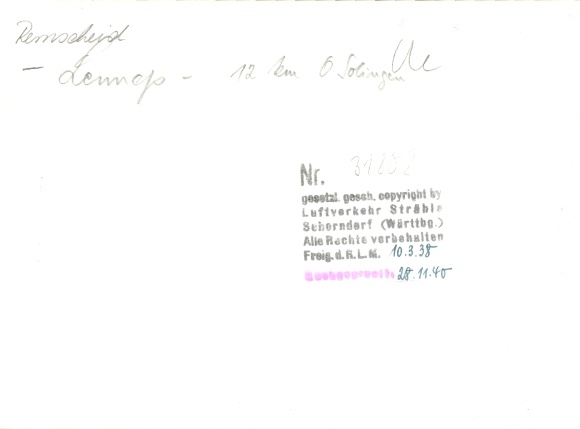 Remscheid
– Lennep – 12 km O Solingen
Nr.
gesetzl. gesch. copyright by
Luftverkehr Strähle
Schorndorf (Württbg.)
Alle Rechte vorbehalten
Freig. d. R.L.M. 10.3.38
28.11.40